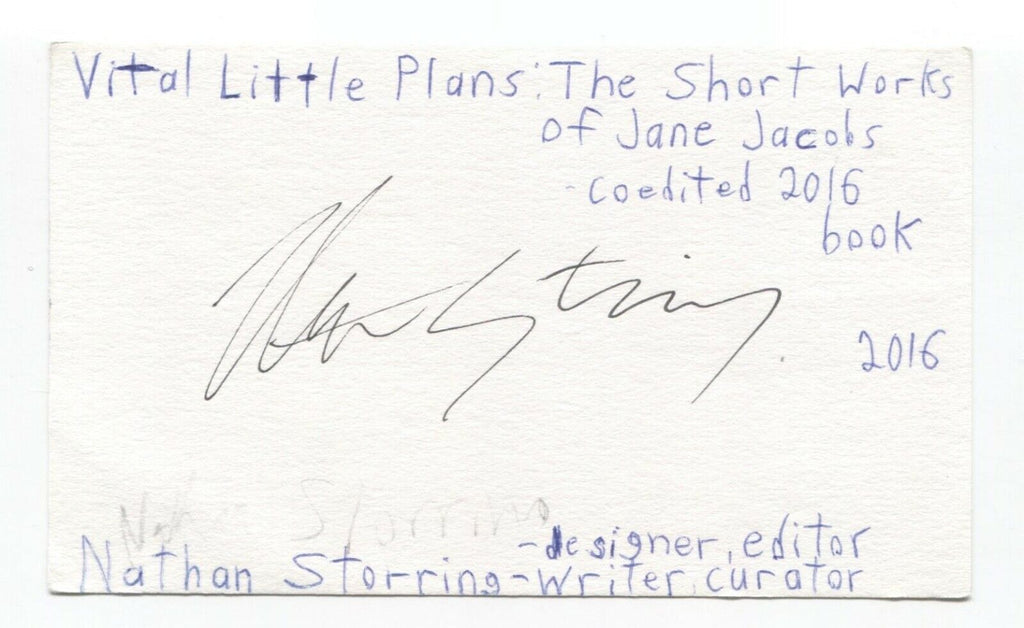 Vital Little Plans: The Short Works
of Jane Jacobs
-coedited 2016
book
2016
-designer, editor
Nathan Storring-writer, curator